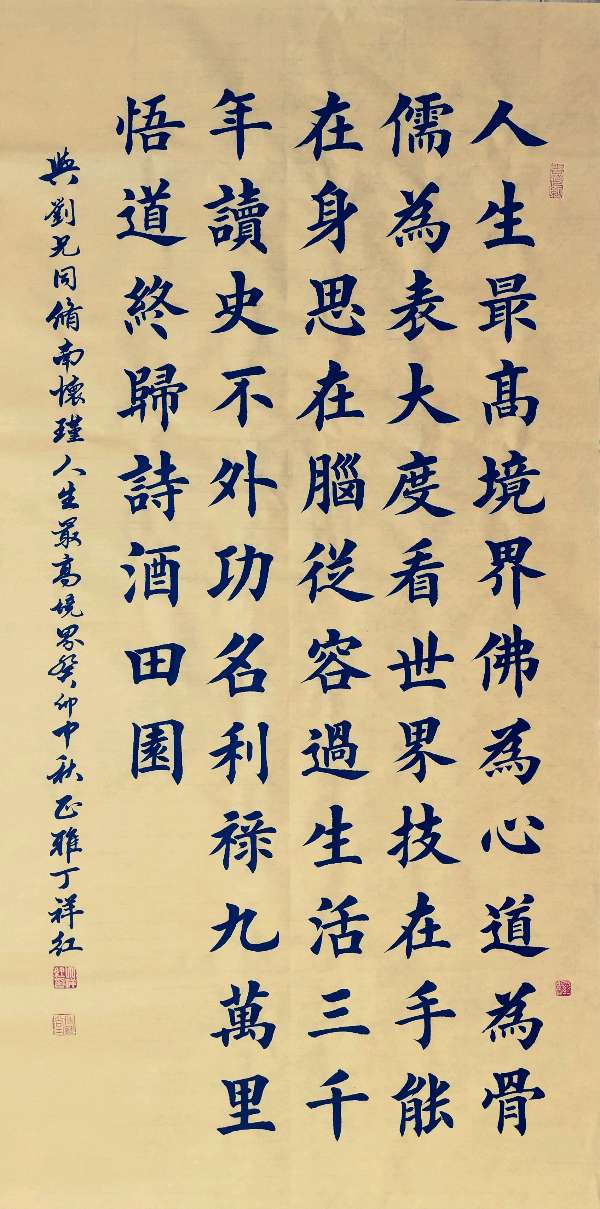 人生最高境界佛為心道為骨
儒為表大度看世界技在手能
在身思在腦從容過生活三千
年讀史不外功名利祿九萬里
悟道終歸詩酒田園
與劉兄同脩南懷瑾人生最高境界癸卯中秋正雅丁祥紅